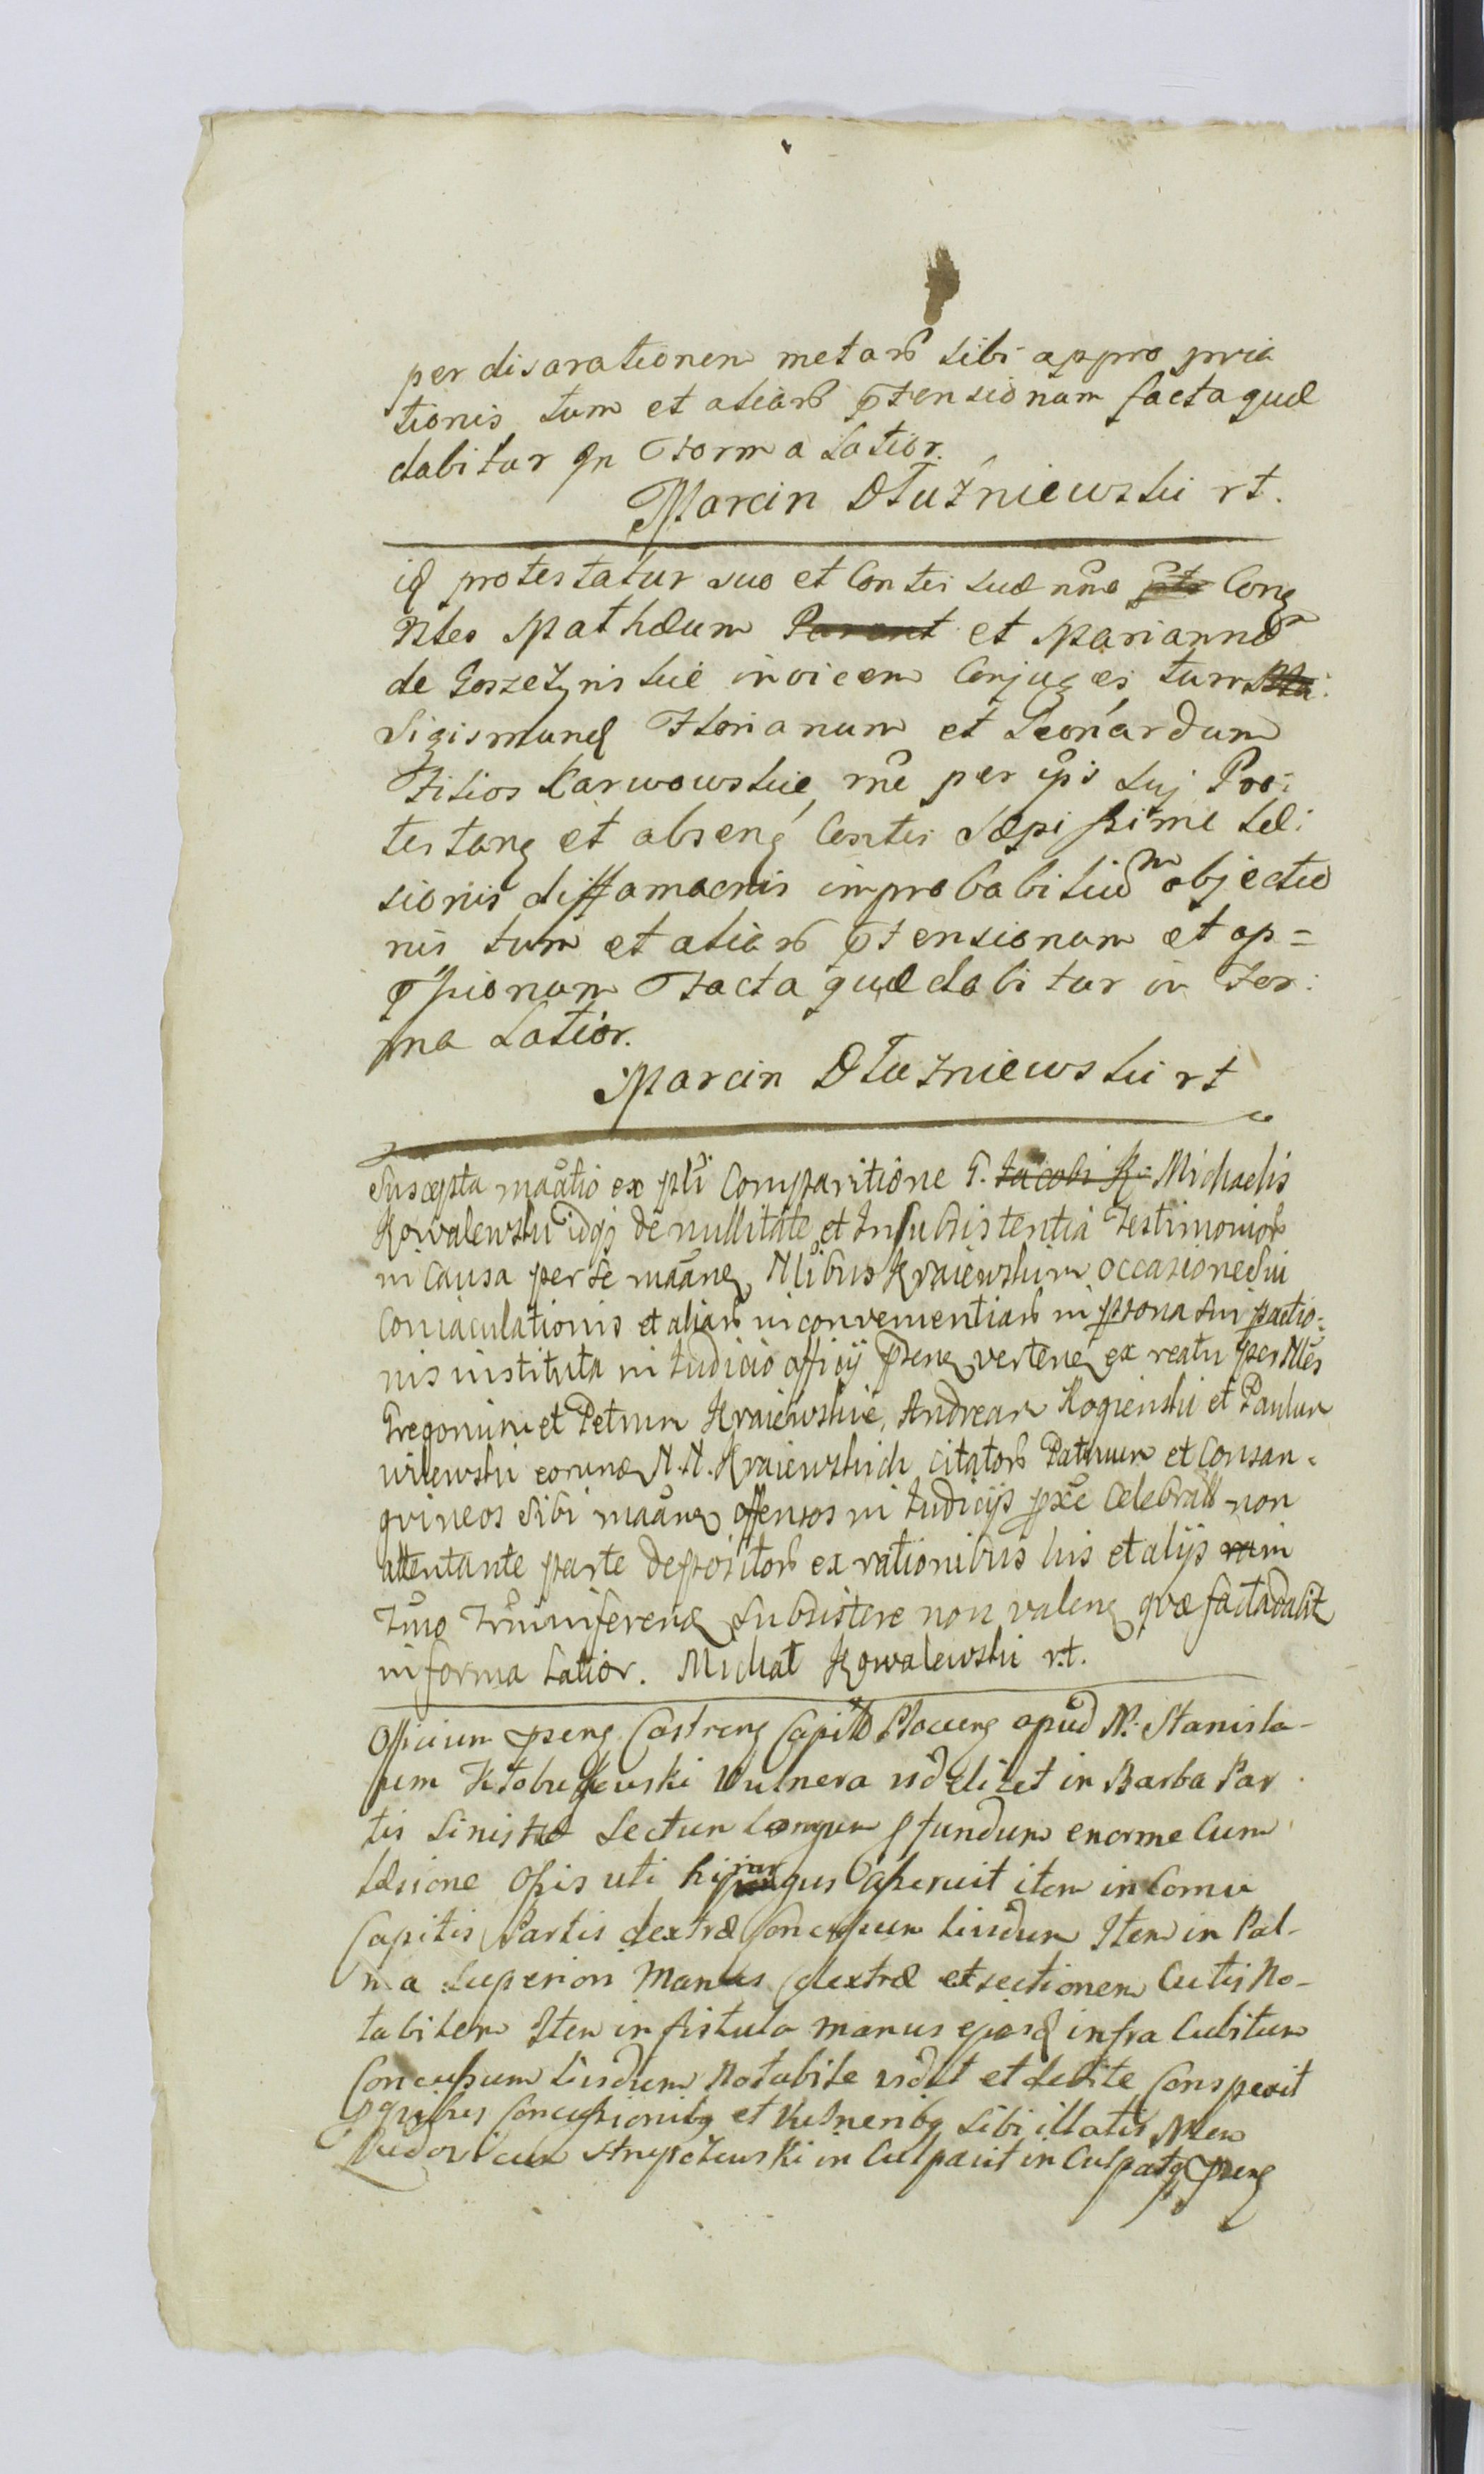 per disarationem metarū sibi appropria
tionis tum et aliarū ptensionum facta quæ
dabitur In Forma Latior.
Marcin Dłużniewski rt.
id protestatur suo et Contis suæ nne Conq
Nles Mathæum Parant et Mariannã
de Goszczynskie invicem Conjuges tum
Sigismund Florianum et Leonardum
Filios Karwowskie, rne per ipis suj Pro:
testanq et absenq Contis Sæpissime Læ:
sionis diffamaonis improbabiliũm objectio
nis tum et aliarū ptensionum et op=
pssionum Facta quæ dabitur in For:
ma Latior.
Marcin Dłużniewski rt
Suscepta maãtio ex psti Comparitione G. Jacobi K: Michaelis
Kowalewski idqȝ de nullitate et Insubsistentia Testimoniorū
in Causa per se maãne Nlibus Kraiewskim occasione sui
Coniaculationis et aliarū inconvenientiarū in psona sui patio:
nis instituta in Judicio officij psene vertene ex reatu per Nlēs
Gregorium et Petrum Kraiewskie, Andream Rogienski et Paulum
wilewski eorunq N.N. Kraiewskich citatorū Patruum et Consan:
gvineos sibi maãne offensos in Judicijs pxe Celebratt non
attentante parte depositorū ex rationibus his et alijs ram in
Tmo Tmi inferenq subsistere non valene qvæ facta dabit
in forma Latior. Michał Kowalewski r.t.
Officium psenq Castrenq Capitt Plocenq apud N. Stanisla-
um Kłobukowski Vulnera videlicet in Barba Par
tis Sinistræ Sectum Longum pfundum enorme Cum
læsione Ossis uti Chijrurgus asseruit item in Cornu
Capitis Partis dextræ Concussum Lividum Item in Pal-
ma Superiori Manus dextræ et sectionem Cutis No-
tabilem Item in fistula manus ejusd infra Cubitum
Concussum Lividum Notabile vidit et debite Conspexit
p quibus Concussionibq et Vulneribq Sibi illatis Nlem
Ludovicum Strzyżewski in Culpavit in Culpatq psenq